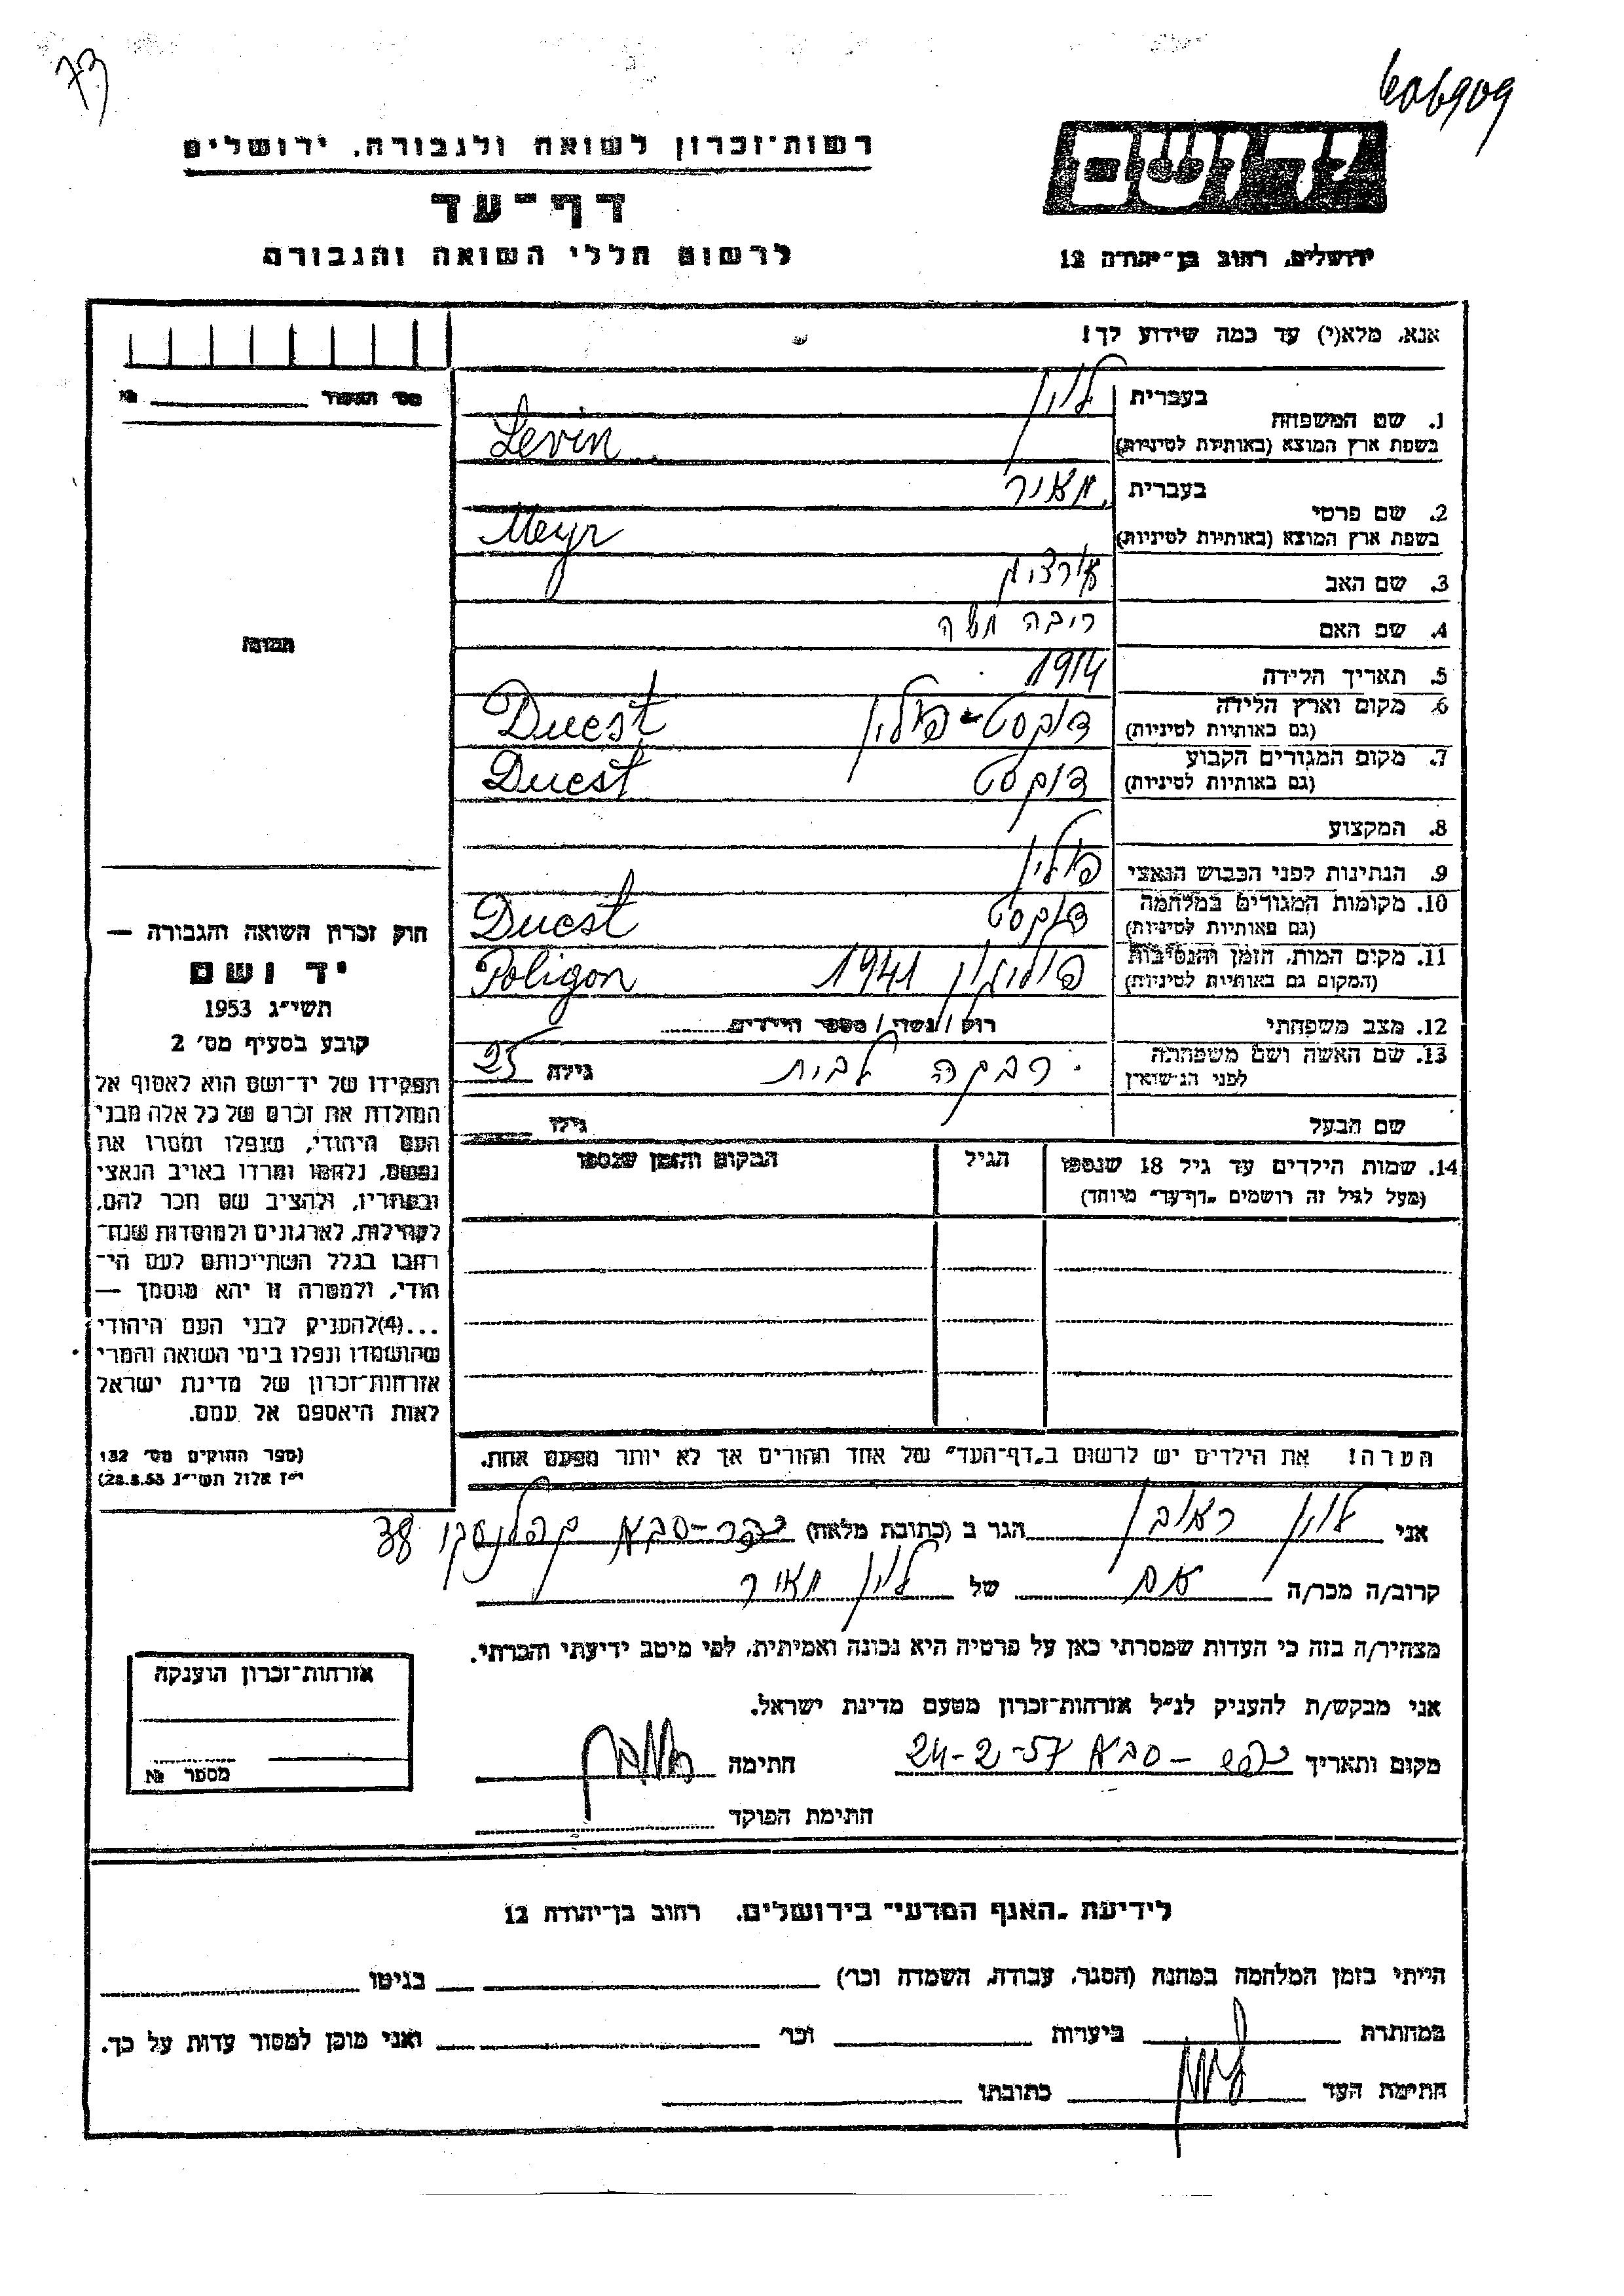 73
606909
רשות-זכרון לשואה ולגבורה, ירושלים
דף-עד
לרשום חללי השואה והגבורה
ירושלים, רחוב בן-יהודה 12
אנא, מלא(י) עד כמה שידוע לך!
מס' האשור № ______
1. שם המשפחה בעברית לוין
בשפת ארץ המוצא (באותיות לטיניות) Levin
2. שם פרטי בעברית מאיר
בשפת ארץ המוצא (באותיות לטיניות) Meyr
3. שם האב
4. שם האם ריבה
5. תאריך הלידה 1914
6. מקום וארץ הלידה (גם באותיות לטיניות) דוקסט - פולין Ducst
7. מקום המגורים הקבוע (גם באותיות לטיניות) דוקסט Ducst
8. המקצוע
9. הנתינות לפני הכבוש הנאצי פולין
10. מקומות המגורים במלחמה (גם באותיות לטיניות) דוקסט Ducst
11. מקום המות, הזמן והנסיבות (המקום גם באותיות לטיניות) פוליגון 1941 Poligon
12. מצב משפחתי רוק / נשוי / מספר הילדים
13. שם האשה ושם משפחתה לפני הנישואין רבקה לבית גילה 25
שם הבעל גילו
14. שמות הילדים עד גיל 18 שנספו
(מעל לגיל זה רושמים "דף-עד" מיוחד)
הגיל
המקום והזמן שנספו
תמונה
חוק זכרון השואה והגבורה —
יד ושם
תשי"ג 1953
קובע בסעיף מס' 2
תפקידו של יד-ושם הוא לאסוף אל
המולדת את זכרם של כל אלה מבני
העם היהודי, שנפלו ומסרו את
נפשם, נלחמו ומרדו באויב הנאצי
ובעוזריו, ולהציב שם וזכר להם,
לקהילות, לארגונים ולמוסדות שנח-
רבו בגלל השתייכותם לעם הי-
הודי, ולמטרה זו יהא מוסמך —
...(4)להעניק לבני העם היהודי
שהושמדו ונפלו בימי השואה והמרי
אזרחות-זכרון של מדינת ישראל
לאות היאספם אל עמם.
(ספר החוקים מס' 132
י"ז אלול תשי"ג 28.8.53)
הערה! את הילדים יש לרשום ב"דף-העד" של אחד ההורים אך לא יותר מפעם אחת.
אני לוין ראובן הגר ב (כתובת מלאה) כפר-סבא 38
קרוב/ה מכר/ה אח של לוין מאיר
מצהיר/ה בזה כי העדות שמסרתי כאן על פרטיה היא נכונה ואמיתית, לפי מיטב ידיעתי והכרתי.
אני מבקש/ת להעניק לנ"ל אזרחות-זכרון מטעם מדינת ישראל.
מקום ותאריך כפר-סבא 24-2-57 חתימה
חתימת הפוקד
אזרחות-זכרון הוענקה
מספר №
לידיעת "האגף המדעי" בירושלים, רחוב בן-יהודה 12
הייתי בזמן המלחמה במחנה (הסגר, עבודה, השמדה וכו') בגיטו
במחתרת ביערות וכו' ואני מוכן למסור עדות על כך.
חתימת העד כתובתו